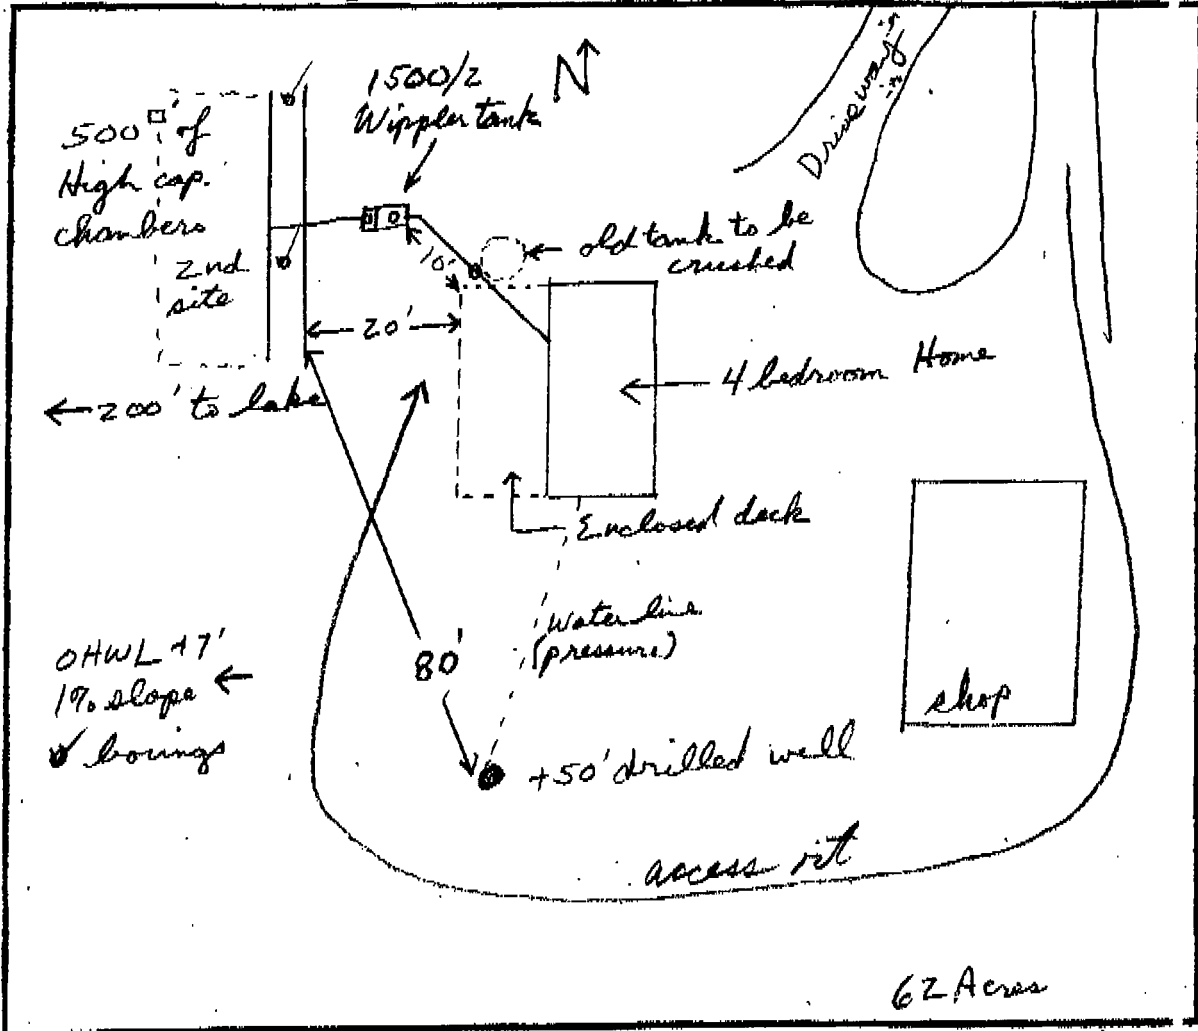 N
1500/2
Wippler tank
Driveway
500□' of
High cap.
chambers
2nd
site
10'
old tank to be
crushed
20'
4 bedroom Home
←200' to lake
Enclosed deck
Water line
(pressure)
80'
OHWL +7'
1% slope
borings
shop
+50' drilled well
access rt
62 Acres